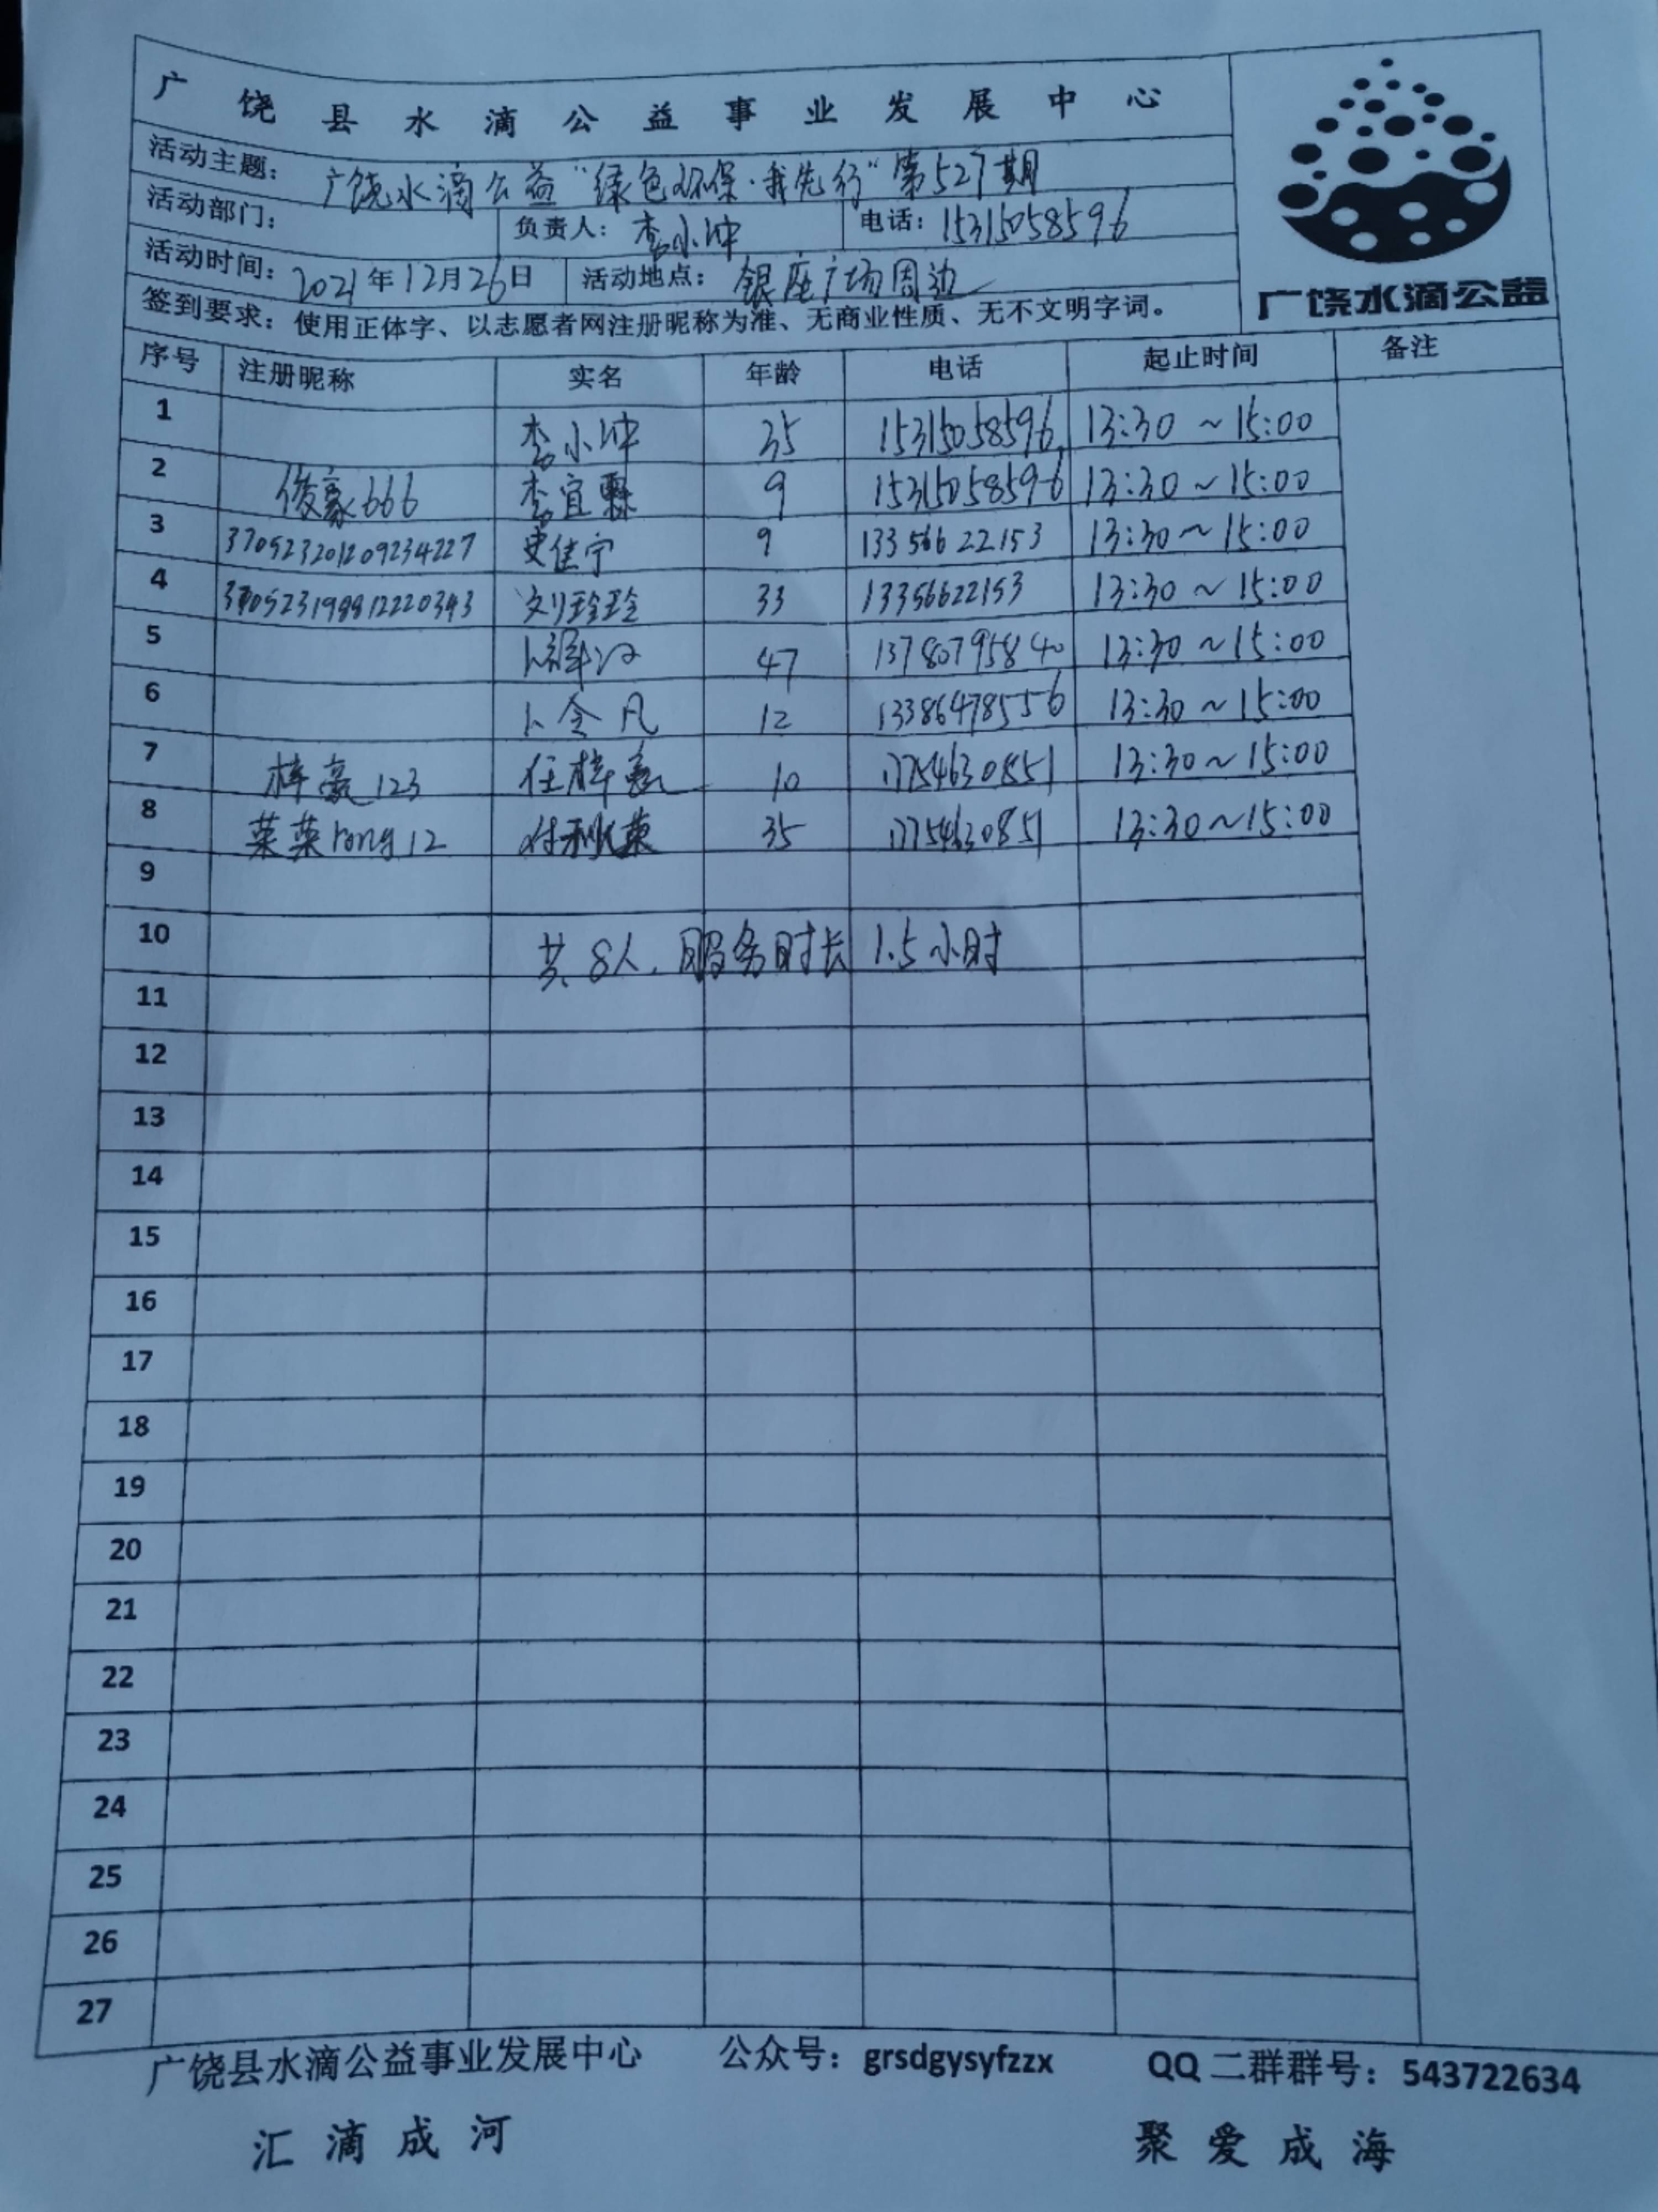 广饶县水滴公益事业发展中心
活动主题：广饶水滴公益“绿色环保·我先行”第527期
活动部门： 负责人：李小冲 电话：15315058596
活动时间：2021年12月26日 活动地点：银座广场周边
签到要求：使用正体字、以志愿者网注册昵称为准、无商业性质、无不文明字词。
广饶水滴公益
序号 注册昵称 实名 年龄 电话 起止时间 备注
1 李小冲 35 15315058596 13:30～15:00
2 俊豪666 李宜 9 15315058596 13:30～15:00
3 370523201209234227 史佳宁 9 13356622153 13:30～15:00
4 370523198812220343 刘玲玲 33 13356622153 13:30～15:00
5 卜 47 13780795840 13:30～15:00
6 卜令凡 12 13386478556 13:30～15:00
7 梓豪123 任梓豪 10 17754630851 13:30～15:00
8 荣荣rong12 付利荣 35 17754630851 13:30～15:00
9
10 共8人，服务时长1.5小时
11
12
13
14
15
16
17
18
19
20
21
22
23
24
25
26
27
广饶县水滴公益事业发展中心 公众号：grsdgysyfzzx QQ二群群号：543722634
汇滴成河 聚爱成海